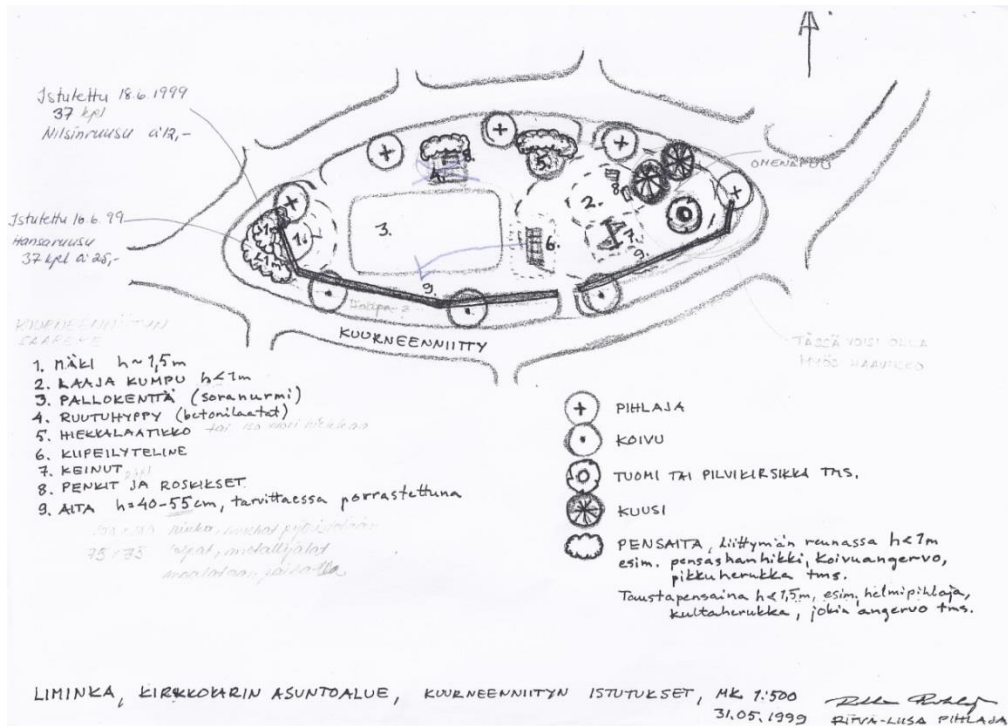 Istutettu 18.6.1999
37 kpl
Nilsinruusu à 12,-
OMENAPUU
Istutettu 16.6.99
Hansaruusu
37 kpl à 25,-
1.
2.
3.
4.
5.
6.
7.
8.
8.
9.
9.
KUURNEENNIITTY
TÄSSÄ VOISI OLLA
MYÖS
1. MÄKI h~1,5m
2. LAAJA KUMPU h<1m
3. PALLOKENTTÄ (soranurmi)
4. RUUTUHYPPY (betonilaatat)
5. HIEKKALAATIKKO tai
6. KIIPEILYTELINE
7. KEINUT
8. PENKIT JA ROSKIKSET
9. AITA h=40-55cm, tarvittaessa porrastettuna
75 x 75
PIHLAJA
KOIVU
TUOMI TAI PILVIKIRSIKKA TMS.
KUUSI
PENSAITA, liittymän reunassa h<1m
esim. pensashanhikki, koivuangervo,
pikkuherukka tms.
Taustapensaina h<1,5m, esim. helmipihlaja,
kultaherukka, jokin angervo tms.
LIMINKA, KIRKKOKARIN ASUNTOALUE, KUURNEENNIITYN ISTUTUKSET, MK 1:500
31.05.1999 RITVA-LIISA PIHLAJA